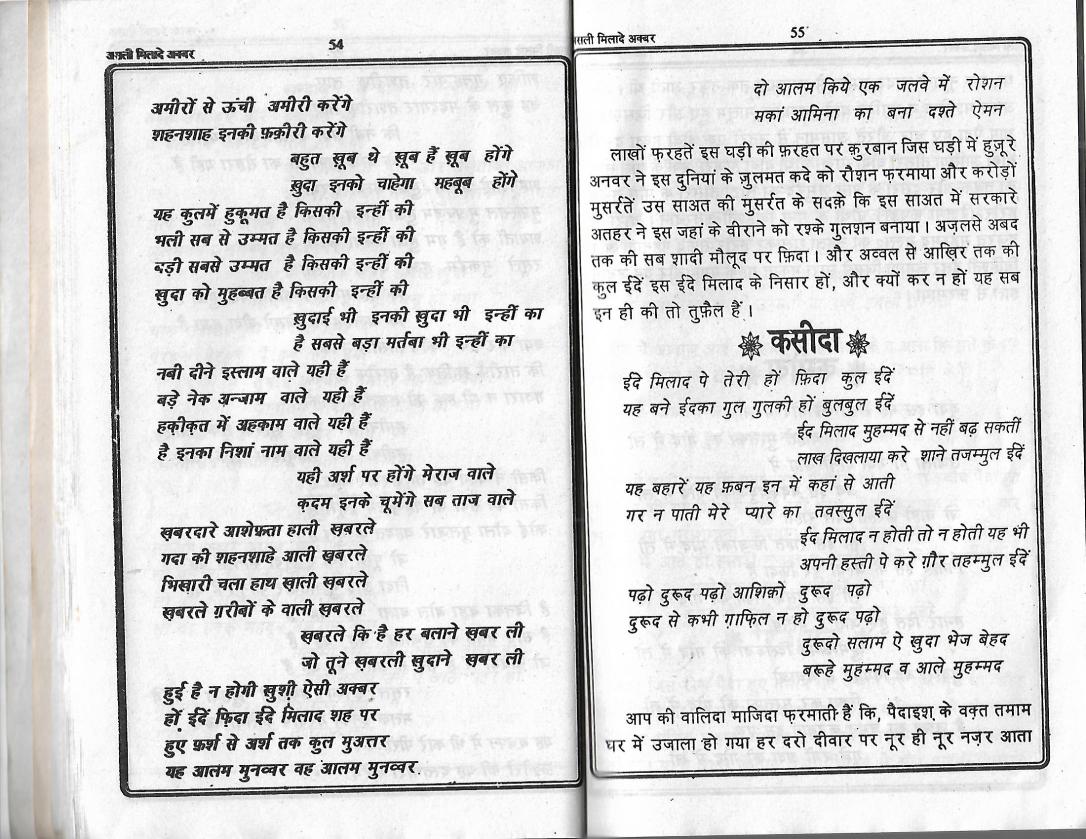 असली मिलादे अक्बर
54
अमीरों से ऊंची अमीरी करेंगे
शहनशाह इनकी फ़क़ीरी करेंगे
बहुत ख़ूब थे ख़ूब हैं ख़ूब होंगे
ख़ुदा इनको चाहेगा महबूब होंगे
यह कुलमें हुकूमत है किसकी इन्हीं की
भली सब से उम्मत है किसकी इन्हीं की
बड़ी सबसे उम्मत है किसकी इन्हीं की
ख़ुदा को मुहब्बत है किसकी इन्हीं की
ख़ुदाई भी इनकी ख़ुदा भी इन्हीं का
है सबसे बड़ा मर्तबा भी इन्हीं का
नबी दीने इस्लाम वाले यही हैं
बड़े नेक अन्जाम वाले यही हैं
हक़ीक़त में अहकाम वाले यही हैं
है इनका निशां नाम वाले यही हैं
यही अर्श पर होंगे मेराज वाले
कदम इनके चूमेंगे सब ताज वाले
ख़बरदारे आशेफ़्ता हाली ख़बरले
गदा की शहनशाहे आली ख़बरले
भिख़ारी चला हाथ ख़ाली ख़बरले
ख़बरले ग़रीबों के वाली ख़बरले
ख़बरले कि है हर बलाने ख़बर ली
जो तूने ख़बरली ख़ुदाने ख़बर ली
हुई है न होगी ख़ुशी ऐसी अक्बर
हों ईदें फ़िदा ईदे मिलाद शह पर
हुए फ़र्श से अर्श तक कुल मुअत्तर
यह आलम मुनव्वर वह आलम मुनव्वर
असली मिलादे अक्बर
55
दो आलम किये एक जलवे में रोशन
मकां आमिना का बना दश्ते ऐमन
लाखों फ़रहतें इस घड़ी की फ़रहत पर कुरबान जिस घड़ी में हुज़ूरे
अनवर ने इस दुनियां के ज़ुलमत कदे को रौशन फ़रमाया और करोड़ों
मुसर्रतें उस साअत की मुसर्रत के सदक़े कि इस साअत में सरकारे
अतहर ने इस जहां के वीराने को रश्के गुलशन बनाया। अज़लसे अबद
तक की सब शादी मौलूद पर फ़िदा। और अव्वल से आख़िर तक की
कुल ईदें इस ईदे मिलाद के निसार हों, और क्यों कर न हों यह सब
इन ही की तो तुफ़ैल हैं।
कसीदा
ईदे मिलाद पे तेरी हों फ़िदा कुल ईदें
यह बने ईदका गुल गुलकी हों बुलबुल ईदें
ईद मिलाद मुहम्मद से नहीं बढ़ सकतीं
लाख दिखलाया करे शाने तजम्मुल ईदें
यह बहारें यह फ़बन इन में कहां से आती
गर न पाती मेरे प्यारे का तवस्सुल ईदें
ईद मिलाद न होती तो न होती यह भी
अपनी हस्ती पे करे ग़ौर तहम्मुल ईदें
पढ़ो दुरूद पढ़ो आशिको दुरूद पढ़ो
दुरूद से कभी ग़ाफ़िल न हो दुरूद पढ़ो
दुरूदो सलाम ऐ ख़ुदा भेज बेहद
बरूहे मुहम्मद व आले मुहम्मद
आप की वालिदा माजिदा फ़रमाती हैं कि, पैदाइश के वक़्त तमाम
घर में उजाला हो गया हर दरो दीवार पर नूर ही नूर नज़र आता